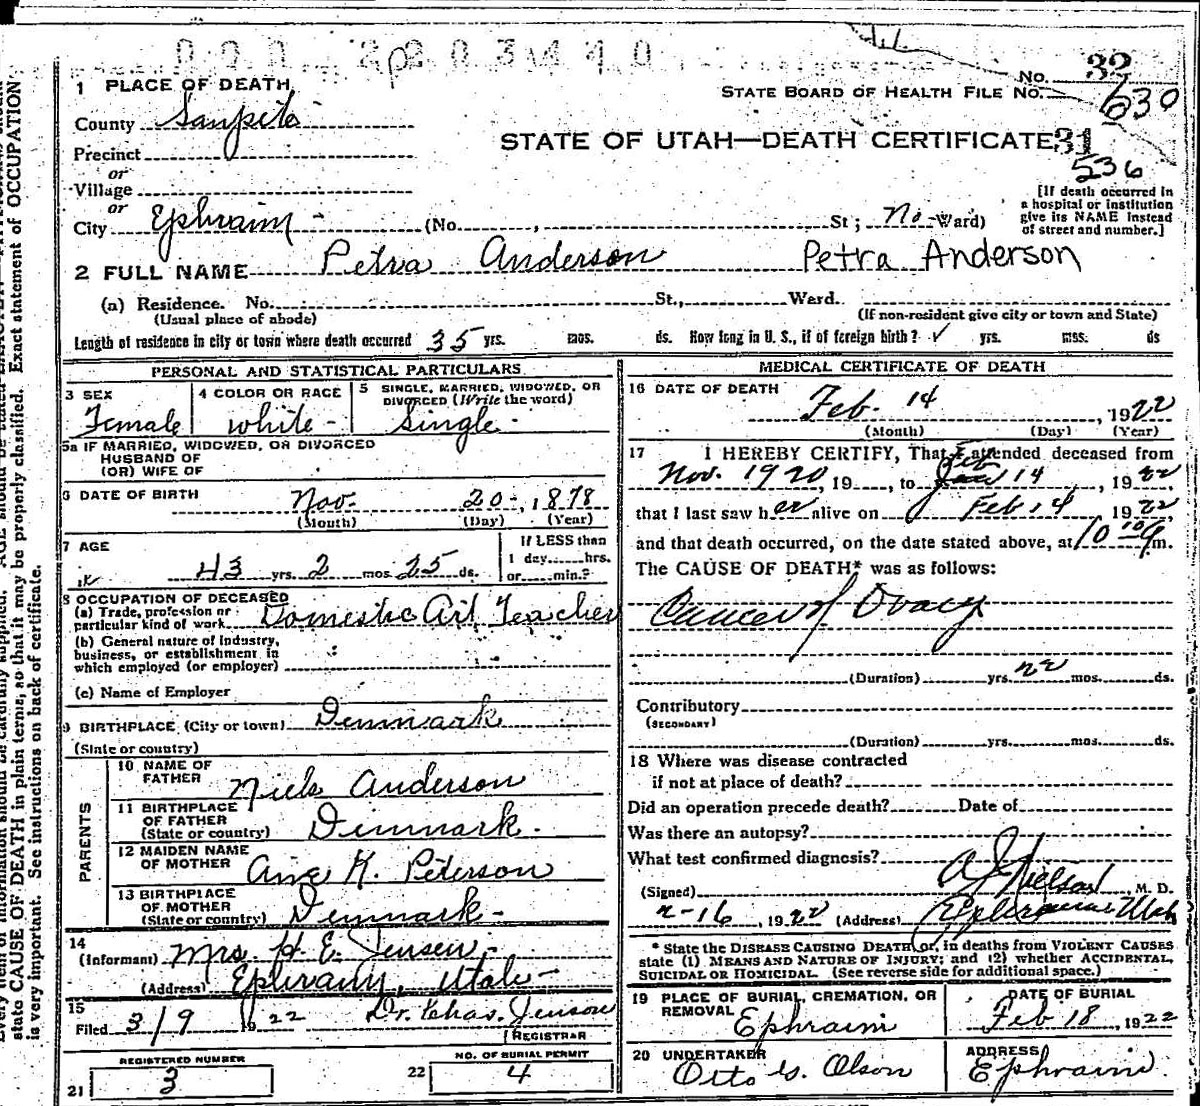 000 2203440
No. 32
STATE BOARD OF HEALTH FILE No. 630
STATE OF UTAH—DEATH CERTIFICATE 31
536
1 PLACE OF DEATH
County Sanpete
Precinct
or
Village
or
City Ephraim - (No. , St; No - Ward)
[If death occurred in
a hospital or institution
give its NAME instead
of street and number.]
2 FULL NAME Petra Anderson Petra Anderson
(a) Residence. No. St., Ward.
(Usual place of abode) (If non-resident give city or town and State)
Length of residence in city or town where death occurred 35 yrs. mos. ds. How long in U. S., if of foreign birth? ✓ yrs. mos. ds
PERSONAL AND STATISTICAL PARTICULARS
3 SEX 4 COLOR OR RACE 5 SINGLE, MARRIED, WIDOWED, OR
DIVORCED (Write the word)
Female white - Single -
5a IF MARRIED, WIDOWED, OR DIVORCED
HUSBAND OF
(OR) WIFE OF
6 DATE OF BIRTH Nov. 20 - , 1878
(Month) (Day) (Year)
7 AGE If LESS than
1 day hrs.
43 yrs. 2 mos. 25 ds. or min.?
8 OCCUPATION OF DECEASED
(a) Trade, profession or
particular kind of work Domestic Art Teacher
(b) General nature of industry,
business, or establishment in
which employed (or employer)
(c) Name of Employer
9 BIRTHPLACE (City or town) Denmark
(State or country)
PARENTS
10 NAME OF
FATHER Niels Anderson
11 BIRTHPLACE
OF FATHER
(State or country) Denmark -
12 MAIDEN NAME
OF MOTHER Ane K. Peterson
13 BIRTHPLACE
OF MOTHER
(State or country) Denmark -
14
(Informant) Mrs. H. E. Jensen -
(Address) Ephraim, Utah -
15
Filed 3/9 1922 Dr. Khas. Jenson
REGISTRAR
REGISTERED NUMBER
21 3
NO. OF BURIAL PERMIT
22 4
MEDICAL CERTIFICATE OF DEATH
16 DATE OF DEATH
Feb. 14 , 1922
(Month) (Day) (Year)
17 I HEREBY CERTIFY, That I attended deceased from
Feb
Nov. 1920, 19 , to 14 , 1922
that I last saw her alive on Feb 14 , 1922
and that death occurred, on the date stated above, at 10 10 m.
The CAUSE OF DEATH* was as follows:
Cancer of Ovary
(Duration) yrs. 22 mos. ds.
Contributory
(SECONDARY)
(Duration) yrs. mos. ds.
18 Where was disease contracted
if not at place of death?
Did an operation precede death? Date of
Was there an autopsy?
What test confirmed diagnosis?
(Signed) A J Nielson M. D.
2-16 , 1922 (Address) Ephraim Utah
* State the DISEASE CAUSING DEATH, or, in deaths from VIOLENT CAUSES
state (1) MEANS AND NATURE OF INJURY; and (2) whether ACCIDENTAL,
SUICIDAL OR HOMICIDAL. (See reverse side for additional space.)
19 PLACE OF BURIAL, CREMATION, OR
REMOVAL Ephraim
DATE OF BURIAL
Feb 18, 1922
20 UNDERTAKER
Otto G. Olson
ADDRESS
Ephraim.
state CAUSE OF DEATH in plain terms, so that it may be properly classified. Exact statement of OCCUPATION
is very important. See instructions on back of certificate.